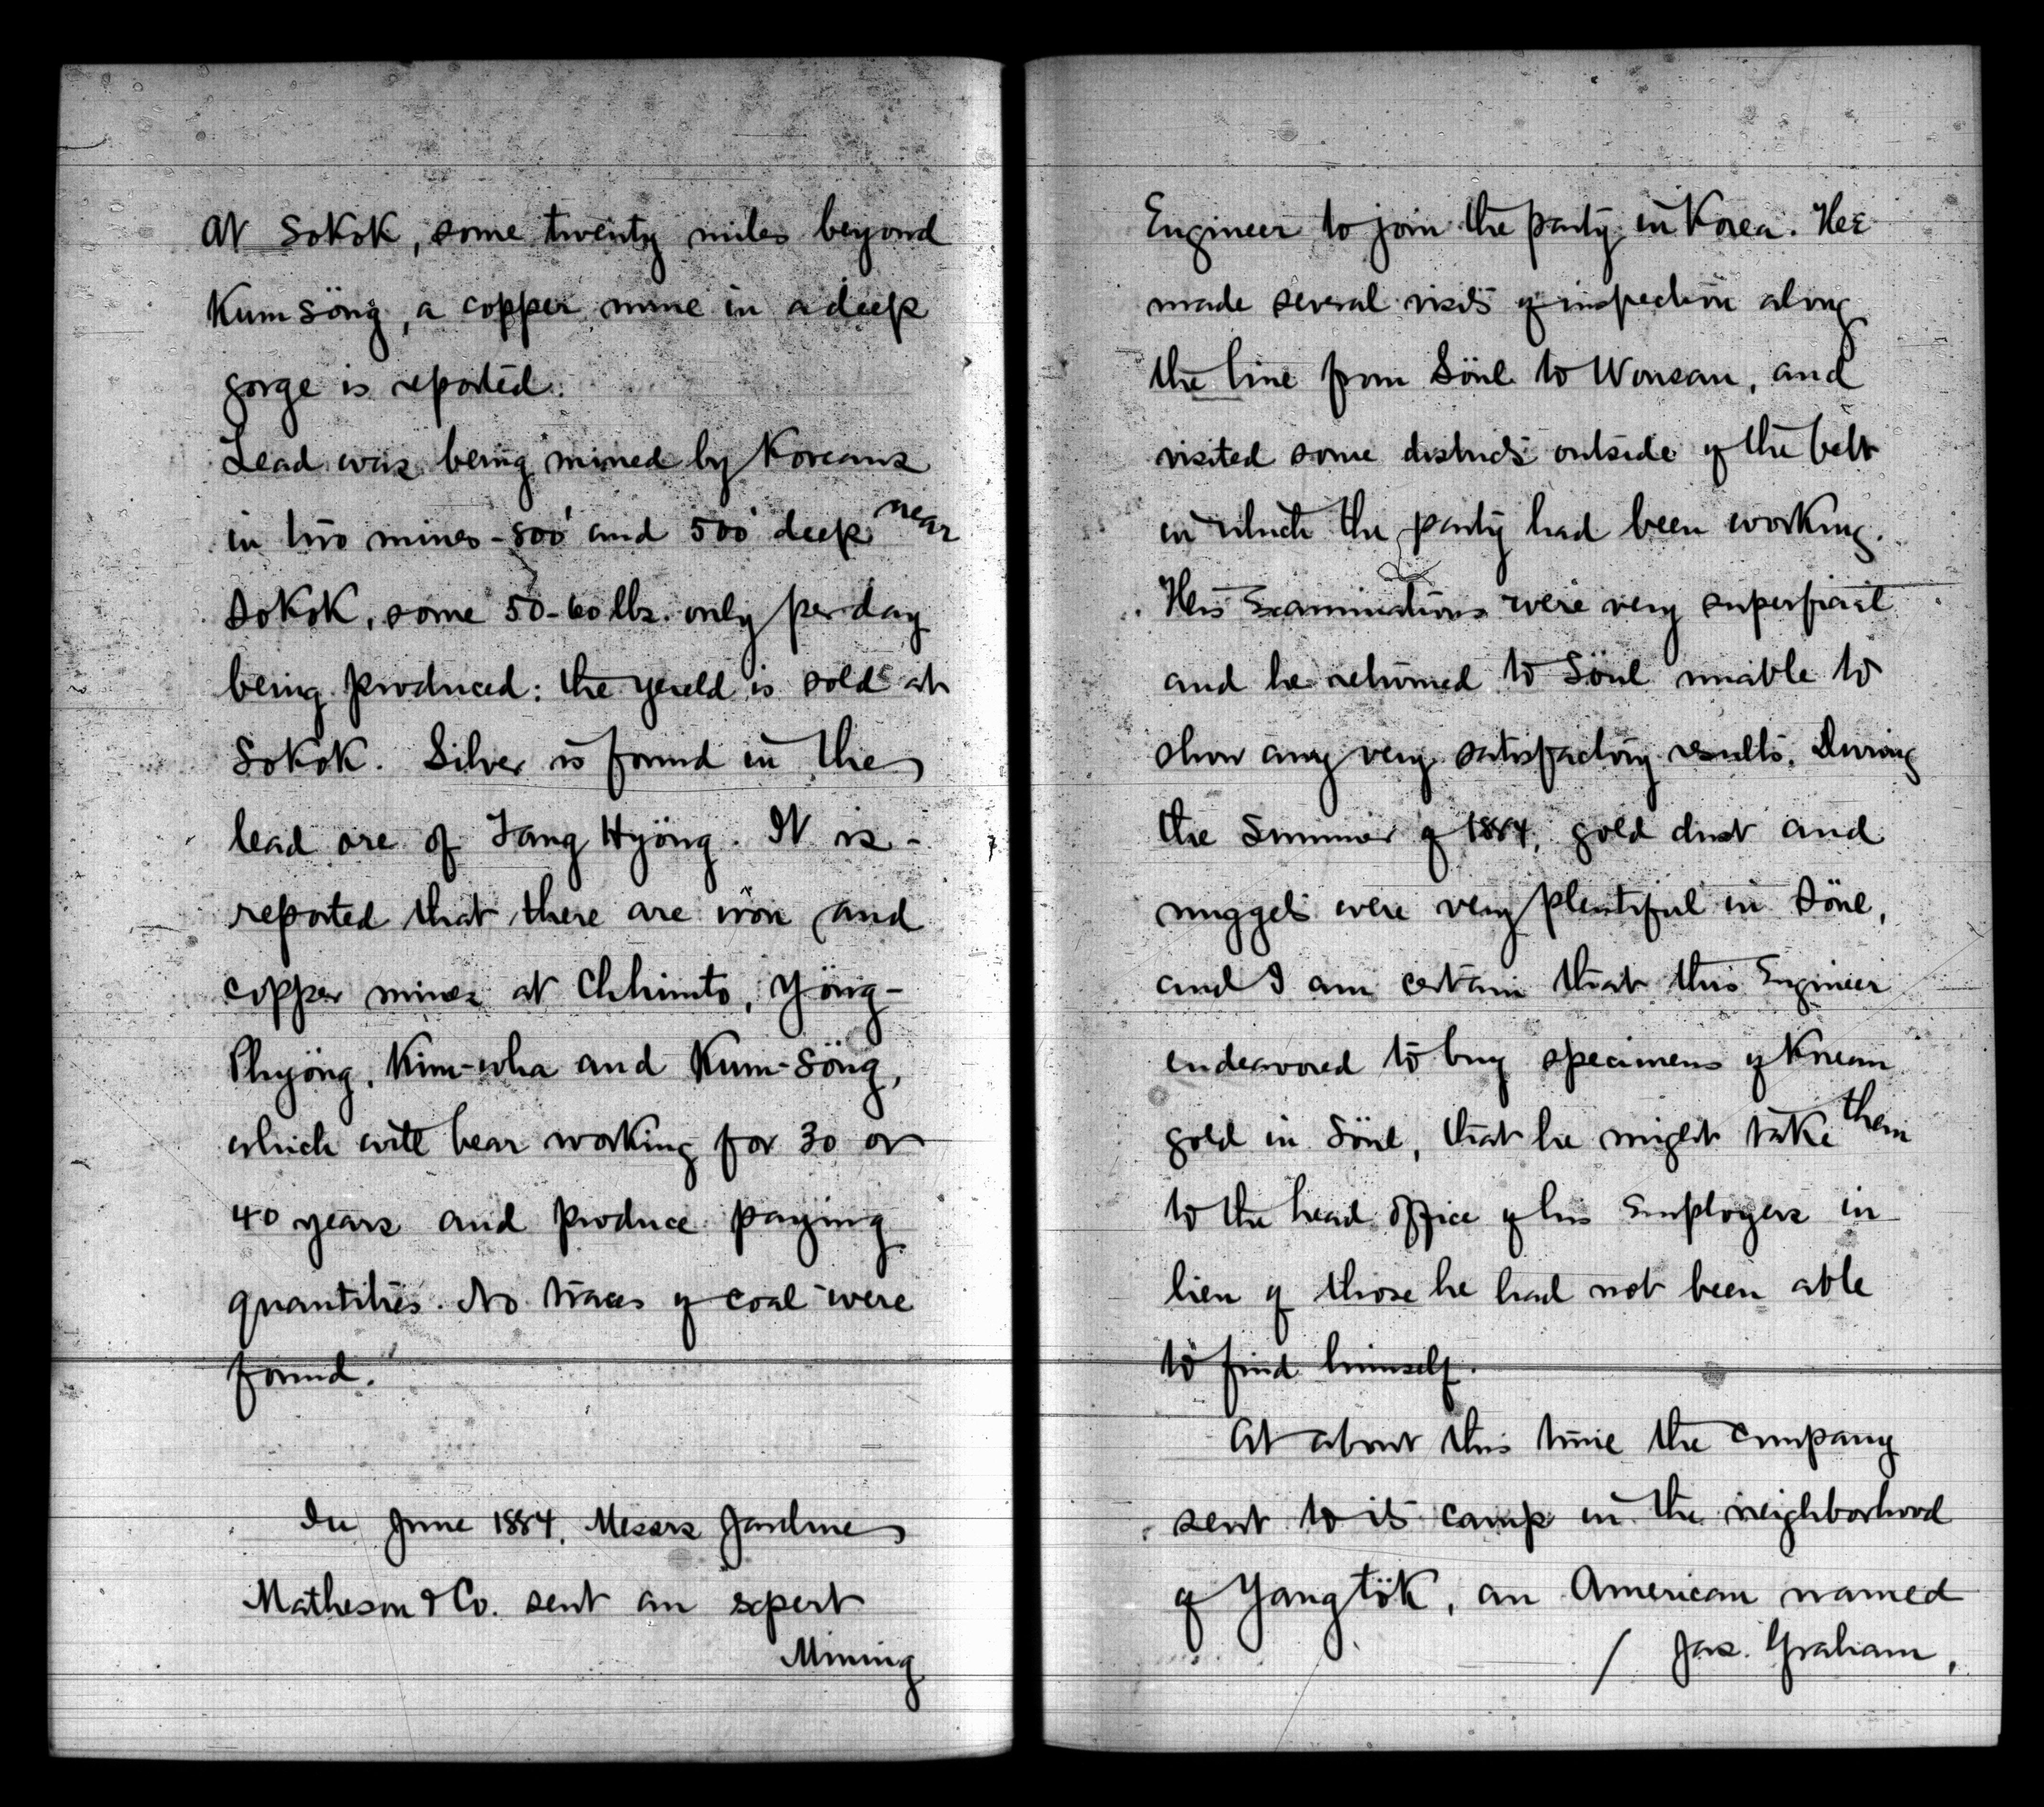 At Sokok, some twenty miles beyond
Kum Söng, a copper mine in a deep
gorge is reported.
Lead was being mined by Koreans
in two mines - 800' and 500' deep near
Sokok, some 50-60 lbs. only per day
being produced: the yield is sold at
Sokok. Silver is found in the
lead ore of Tang Hyöng. It is -
reported that there are iron and
copper mines at Chhimto, Yöng-
Phyöng, Kim-wha and Kum-Söng,
which will bear working for 30 or
40 years and produce paying
quantities. No traces of coal were
found.
In June 1884, Messrs Jardine
Matheson & Co. sent an expert
Mining
Engineer to join the party in Korea. He
made several visits of inspection along
the line from Söul to Wonsan, and
visited some districts outside of the belt
in which the party had been working.
His Examinations were very superficial
and he returned to Söul unable to
show any very satisfactory results. During
the Summer of 1884, gold dust and
nuggets were very plentiful in Söul,
and I am certain that this Engineer
endeavored to buy specimens of Korean
gold in Söul, that he might take them
to the head office of his Employers in
lieu of those he had not been able
to find himself.
At about this time the company
sent to its camp in the neighborhood
of Yang tök, an American named
/ Jas. Graham,